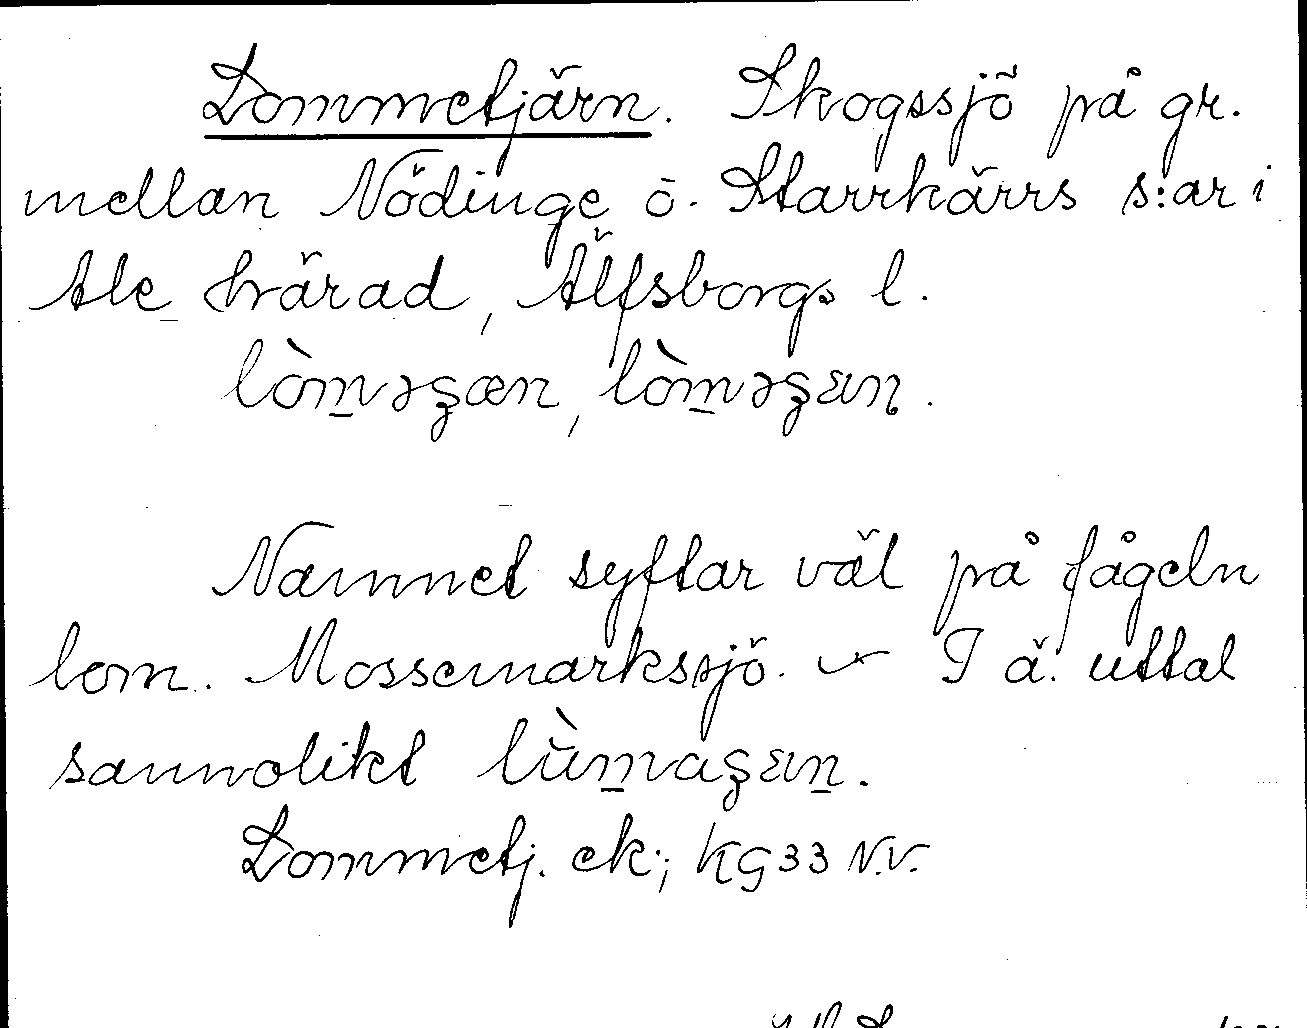 Lommetjärn. Skogssjö på gr.
mellan Nödinge o. Starrkärrs s:ar i
Ale härad, Älfsborgs l.
lòm̲əʂæn, lòm̲əʂæɳ.
Namnet syftar väl på fågeln
lom. Mossemarkssjö. I ä. uttal
sannolikt lùm̲aʂæn̲.
Lommetj. ek; KG 33 N.V.